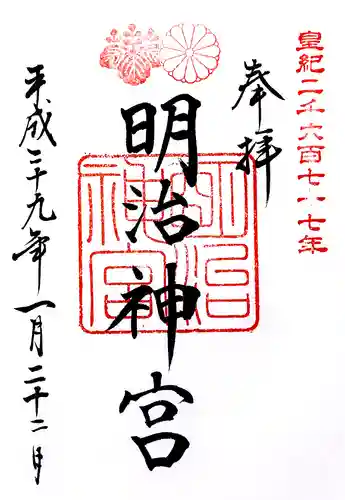 皇紀二千六百七十七年
奉拝
明治神宮
明治神宮
平成二十九年一月二十二日